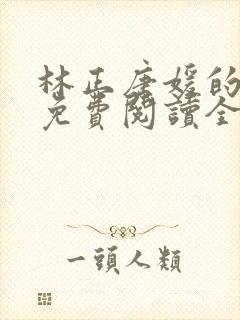 林正唐媛的
免費閱讀全
一頭人類